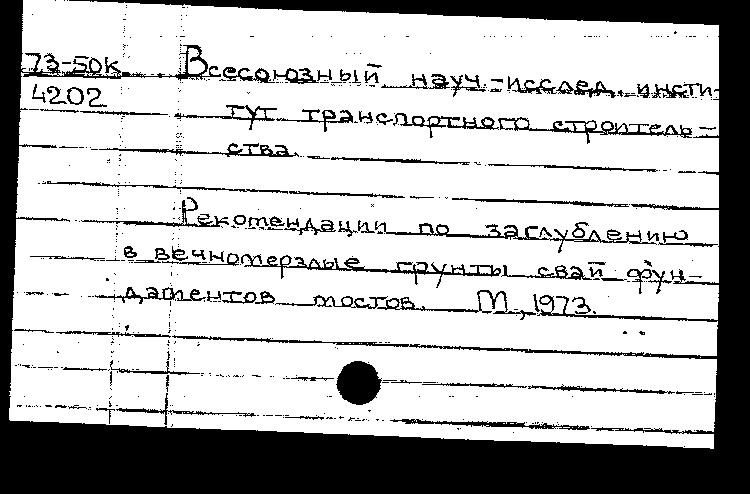 73-50к Всесоюзный науч.-исслед. инсти-
4202 тут транспортного строитель-
ства.
Рекомендации по заглублению
в вечномерзлые грунты свай фун-
даментов мостов. М., 1973.